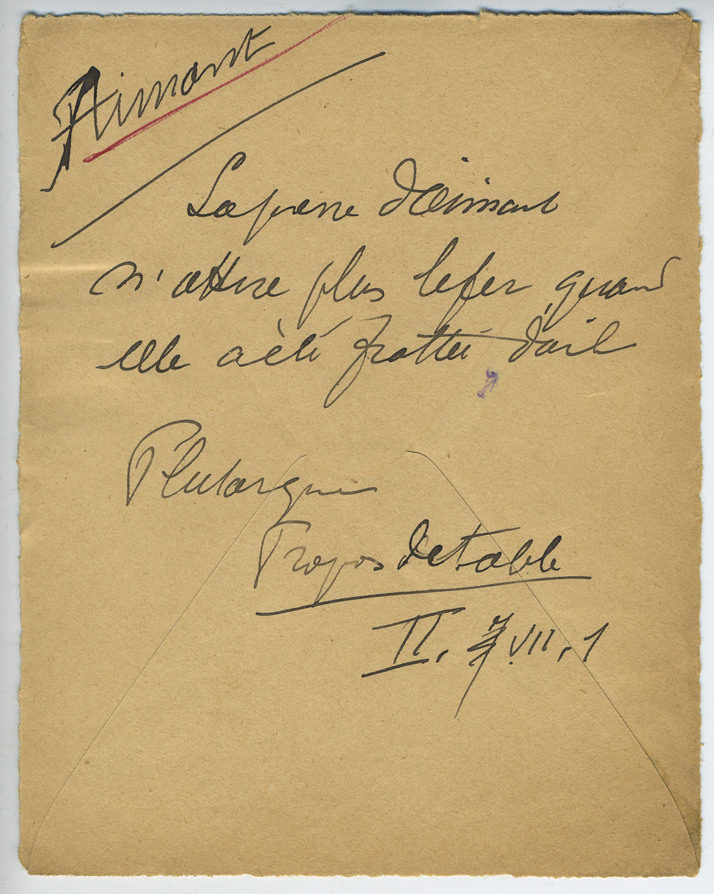 Aimant
La pierre d'Aimant
n'attire plus le fer quand
elle a été frottée d'ail
Plutarque
Propos de Table
II, VII, 1